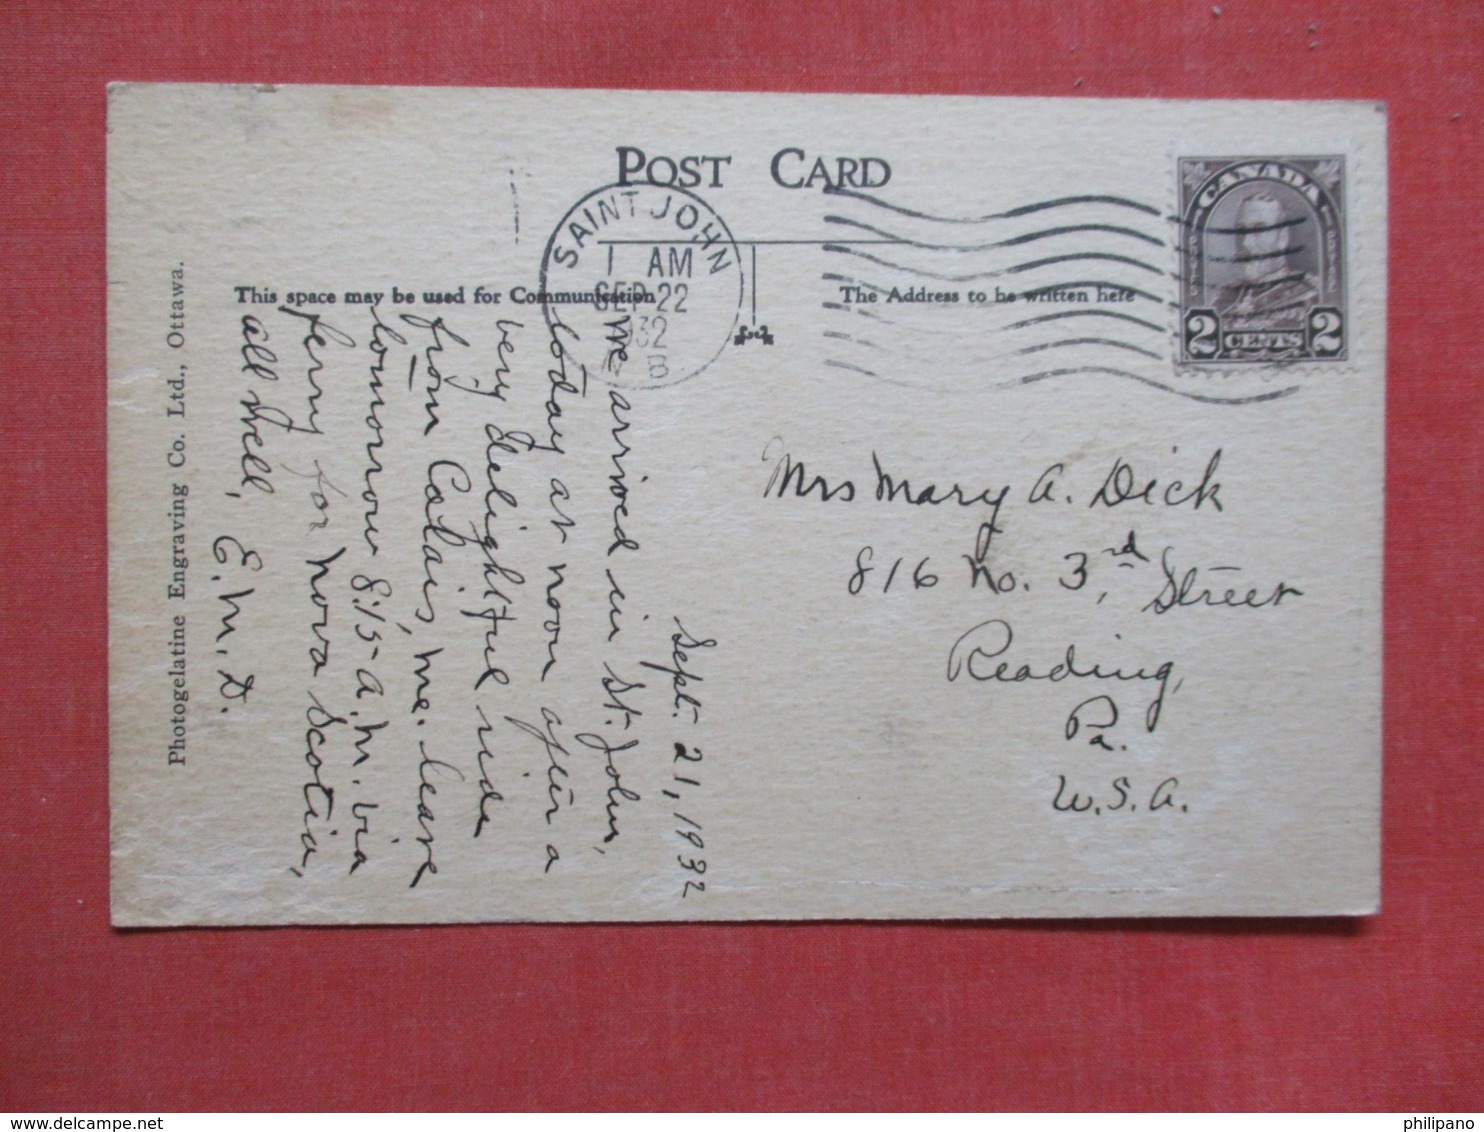 POST CARD
SAINT JOHN
1 AM
SEP 22
932
B
CANADA
2 CENTS 2
This space may be used for Communication
The Address to be written here
Sept. 21, 1932
We arrived in St. John,
today at noon after a
very delightful ride
from Calais, Me. leave
tomorrow 8:15 A.M. via
ferry for Nova Scotia,
all well,
E.M.D.
Mrs Mary A. Dick
816 No. 3rd, Street
Reading,
Pa.
U.S.A.
Photogelatine Engraving Co. Ltd., Ottawa.
philipano